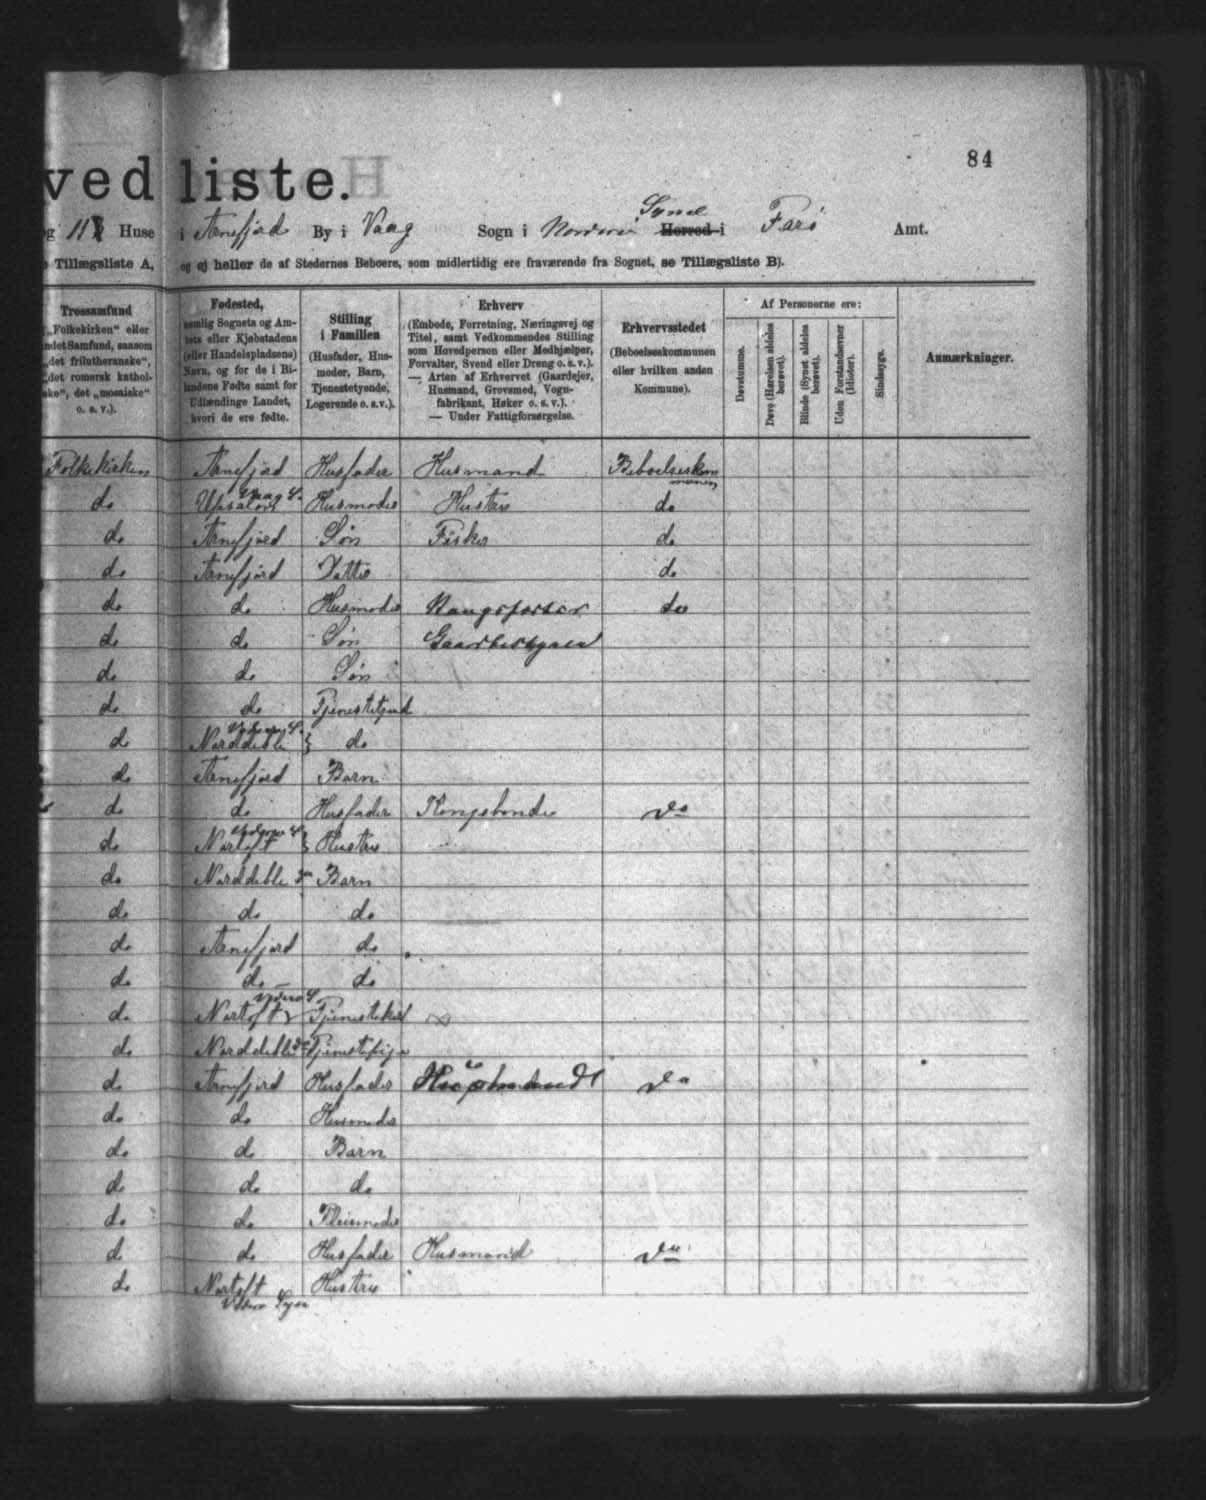 84
ved liste.
og 117 Huse i Arnefjord By i Vaag Sogn i Norderø Syssel Herred i Farø Amt.
Tillægsliste A, og ej heller de af Stedernes Beboere, som midlertidig ere fraværende fra Sognet, se Tillægsliste B).
Trossamfund
„Folkekirken" eller
andet Samfund, saasom
„det frilutheranske",
„det romersk kathol-
ske", det „mosaiske"
o. s. v.).
Fødested,
nemlig Sognets og Am-
tets eller Kjøbstadens
(eller Handelspladsens)
Navn, og for de i Bi-
landene Fødte samt for
Udlændinge Landet,
hvori de ere fødte.
Stilling
i Familien
(Husfader, Hus-
moder, Barn,
Tjenestetyende,
Logerende o. s. v.).
Erhverv
(Embede, Forretning, Næringsvej og
Titel, samt Vedkommendes Stilling
som Hovedperson eller Medhjælper,
Forvalter, Svend eller Dreng o. s. v.).
— Arten af Erhvervet (Gaardejer,
Husmand, Grovsmed, Vogn-
fabrikant, Høker o. s. v.).
— Under Fattigforsørgelse.
Erhvervsstedet
(Beboelseskommunen
eller hvilken anden
Kommune).
Af Personerne ere:
Døvstumme.
Døve (Hørelsen aldeles
berøvet).
Blinde (Synet aldeles
berøvet).
Uden Forstandsevner
(Idioter).
Sindssyge.
Anmærkninger.
Folkekirken Arnefjord Husfader Husmand Beboelseskommunen
do Vaag S. Husmoder Hustru do
do Arnefjord Søn Fisker do
do Arnefjord Datter do
do do Husmoder do
do do Søn Gaardbestyrer
do do Søn
do do Tjenestetyende
do Norddeble do
do Arnefjord Barn
do do Husfader Kongsbonde do
do Nortoft Hustru
do Norddeble do Barn
do do do
do Arnefjord do
do do do
do Nortoft Tjenestekarl
do Norddeble do Tjenestepige
do Arnefjord Husfader do
do do Husmoder
do do Barn
do do do
do do Pleiemoder
do do Husfader Husmand do
do Nortoft Hustru